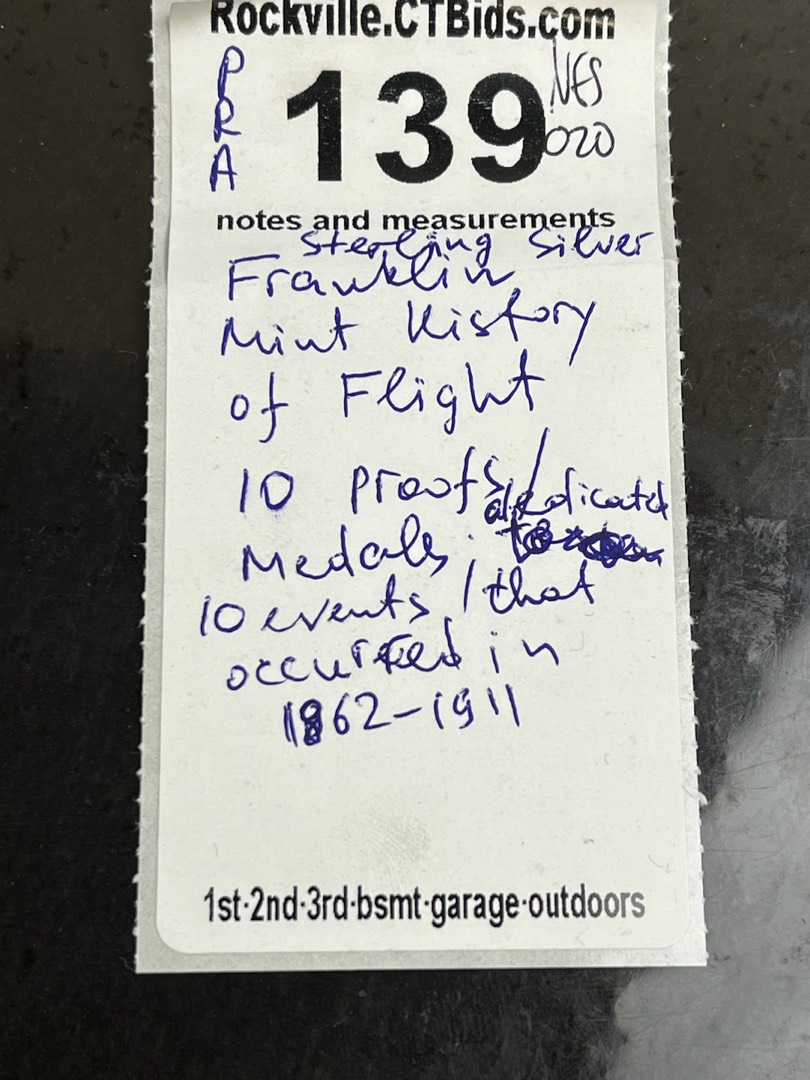 Rockville.CTBids.com
P
R
A
139
NES
020
notes and measurements
Sterling Silver
Franklin
Mint History
of Flight
10 proofs/
dedicated
Medals.
10 events/that
occurred in
1862-1911
1st·2nd·3rd·bsmt·garage·outdoors